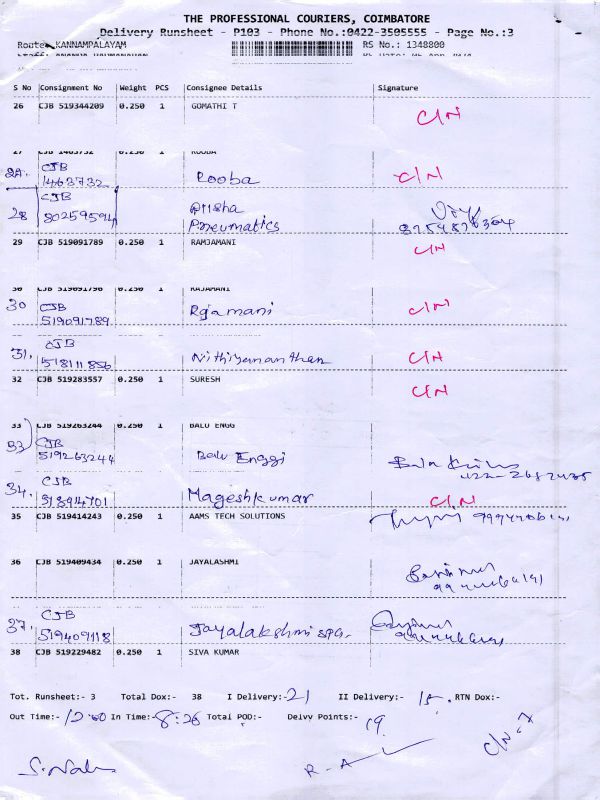 THE PROFESSIONAL COURIERS, COIMBATORE
Delivery Runsheet - P103 - Phone No.:0422-3505555 - Page No.:3
Route: KANNAMPALAYAM RS No.: 1348800
S No Consignment No Weight PCS Consignee Details Signature
26 CJB 519344209 0.250 1 GOMATHI T C/N
27 CJB 1463732 0.250 1 ROOBA
27. CJB 1463732 Rooba C/N
28 CJB 802595914 Pneumatics
29 CJB 519091789 0.250 1 RAMJAMANI C/N
30 CJB 519091790 0.250 1 RAJAMANI
30 CJB 519091789 Rajamani C/N
31. CJB 518111856 Nithiyananthan C/N
32 CJB 519283557 0.250 1 SURESH C/N
33 CJB 519263244 0.250 1 BALU ENGG
33 CJB 519263244 Balu Enggi
34. CJB 518914701 Mageshkumar C/N
35 CJB 519414243 0.250 1 AAMS TECH SOLUTIONS
36 CJB 519409434 0.250 1 JAYALASHMI
37. CJB 519409118 Jayalakshmi spg.
38 CJB 519229482 0.250 1 SIVA KUMAR
Tot. Runsheet:- 3 Total Dox:- 38 I Delivery:- 21 II Delivery:- 15. RTN Dox:-
Out Time:- 12.00 In Time:- 8:26 Total POD:- Deivy Points:- 19
C/N - 7